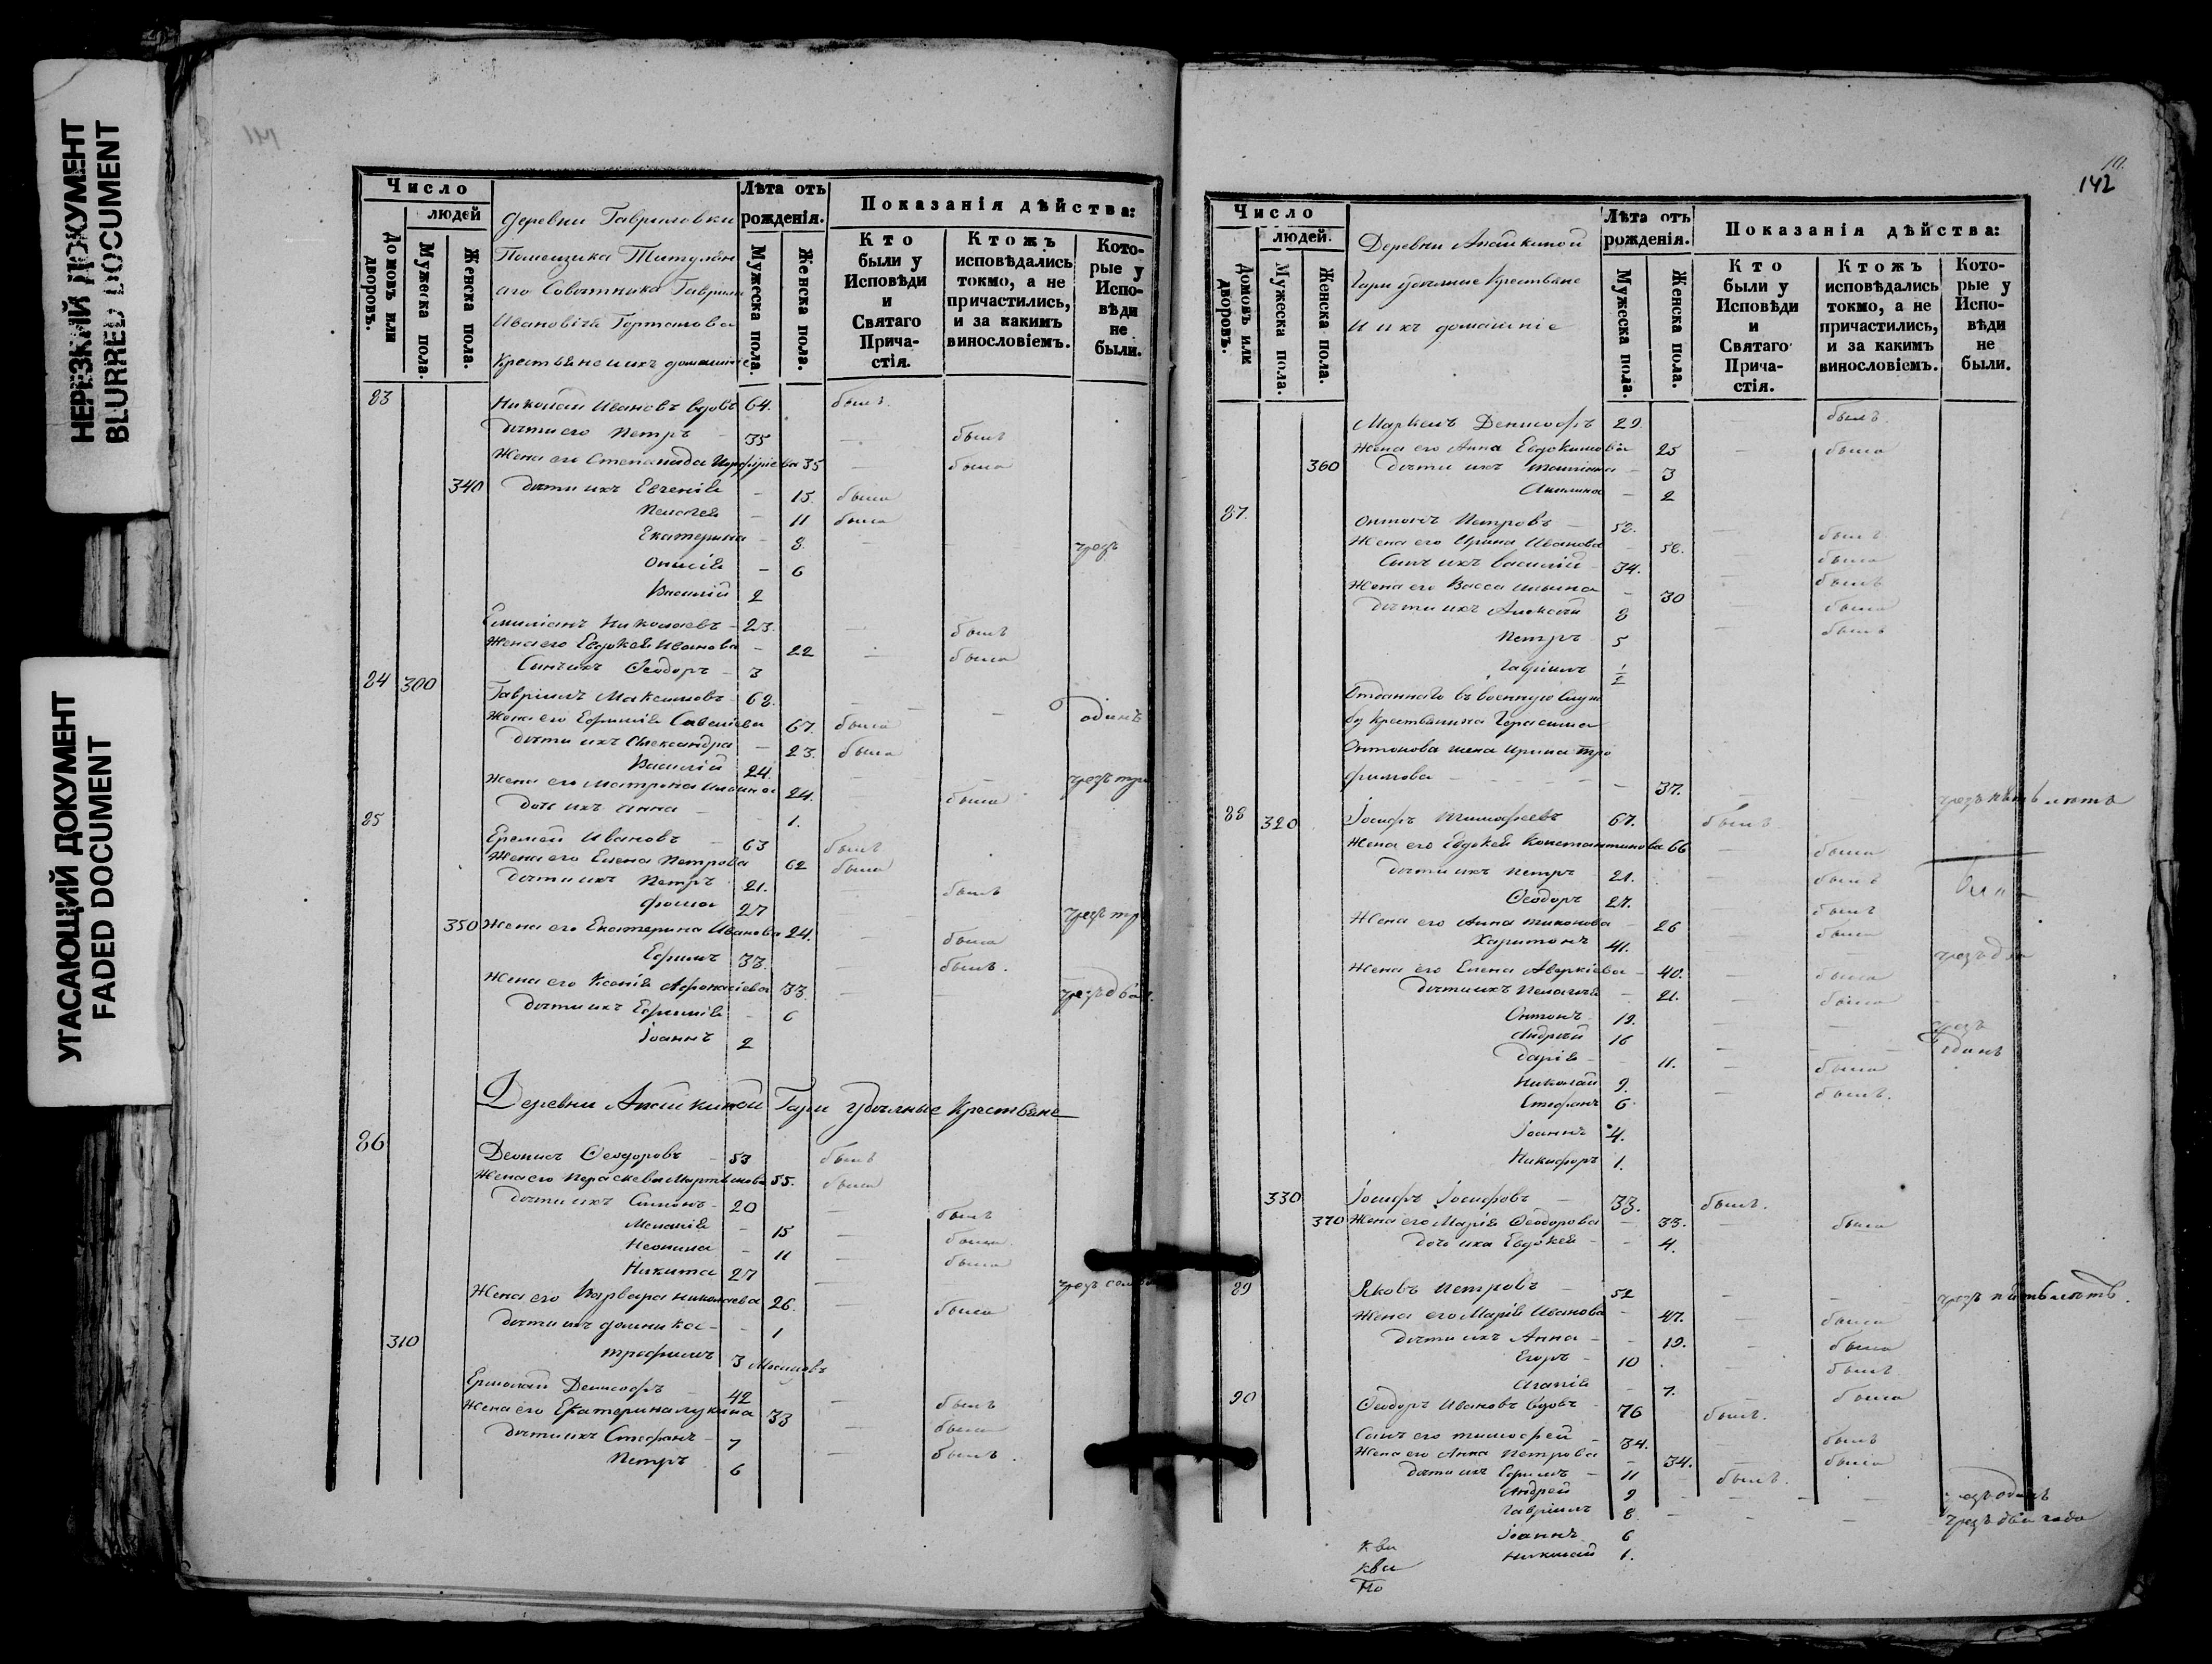 НЕРЕЗКИЙ ДОКУМЕНТ
BLURRED DOCUMENT
УГАСАЮЩИЙ ДОКУМЕНТ
FADED DOCUMENT
141
Число
людей
Домовъ или дворовъ.
Мужеска пола.
Женска пола.
деревни Гавриловки
Помещика Титулян
аго Советника Гаврила
Ивановича Гортолова
Крестьяне и ихъ домашние
Лѣта отъ рожденія.
Мужеска пола.
Женска пола.
Показанія дѣйства:
Кто были у Исповѣди и Святаго Причастія.
Ктожъ исповѣдались токмо, а не причастились, и за какимъ винословіемъ.
Которые у Исповѣди не были.
83 Николай Ивановъ вдовъ 64. былъ.
дети его Петръ - 35 - былъ
Жена его Степанида 35 - была
340 дети ихъ Евгенія - 15. была
Пелагея - 11 была
Екатерина - 8. - чрезъ
Онисія - 6
Василій 2
Емиліанъ Николаевъ - 23. - былъ
Жена его Евдокея Иванова - 22 - была
Сынъ ихъ Ѳеодоръ - 3
84 300 Гавріилъ Максимовъ - 68. - - одинъ
Жена его Ефимія Савеліева 67. была
дети ихъ Александра - 23. была
Василій 24. - - чрезъ три
Жена его Матрона 24. - была
дочь ихъ Анна - 1.
85 Еремей Ивановъ - 63 былъ
Жена его Елена Петрова 62 была
дети ихъ Петръ 21. - былъ
Фома 27 чрезъ три
350 Жена его Екатерина Иванова 24. - была
Ефимъ 33. - былъ.
Жена его Ксенія Афонасіева 33. - - чрезъ два.
дети ихъ Ефимія - 6
Іоаннъ 2
Деревни Апайкиной Гари удельные Крестьяне
86 Деонисъ Ѳеодоровъ - 53 былъ
Жена его Параскева Мартынова 55. была
дети ихъ Симонъ - 20 - былъ
Меланія - 15 - была.
Неонила - 11 - была
Никита 27 - - чрезъ
Жена его Варвара Николаева 26. - была
дети ихъ Домника - - 1
310 Трофимъ 3 Месяцовъ
Ермолай Денисофъ - 42 - былъ
Жена его Екатерина Лукина 33 - была
дети ихъ Стефанъ - 7 - былъ.
Петръ 6
19.
142
Число
людей.
Домовъ или дворовъ.
Мужеска пола.
Женска пола.
Деревни Апайкиной
Гари удельные Крестьяне
И ихъ домашніе
Лѣта отъ рожденія.
Мужеска пола.
Женска пола.
Показанія дѣйства:
Кто были у Исповѣди и Святаго Причастія.
Ктожъ исповѣдались токмо, а не причастились, и за какимъ винословіемъ.
Которые у Исповѣди не были.
Маркелъ Денисофъ 29. - былъ.
Жена его Анна Евдокимова 25 - была
360 дети ихъ - 3
Акилина - 2
87. Онтонъ Петровъ - 58. - былъ
Жена его Ирина Иванова - 58. - была
Сынъ ихъ Василій - 34. - былъ
Жена его Васса Ильина - 30 - была
дети ихъ Алексей 8 - былъ
Петръ 5
Гавріилъ 1/2
Отданнаго въ военную служ
бу крестьянина Герасима
Онтонова жена Ирина Тро
фимова - - - - 37. - - чрезъ пять летъ
88 320 Іосифъ Тимофеевъ 67. былъ
Жена его Евдокея Константинова 66 - была
дети ихъ Петръ 21. - былъ
Ѳеодоръ 27. - былъ
Жена его Анна Тихонова - 26 - была
Харитонъ 41. - - чрезъ два
Жена его Елена Аверкіева - 40. - была
дети ихъ Пелагея - 21. - была
Онтонъ 19. - - чрезъ
Андрей 16 - - одинъ
Дарія - - 11. - была
Николай 9. - былъ.
Стефанъ 6.
Іоаннъ 4.
Никифоръ 1.
330 Іосифъ Іосифовъ - 33. былъ.
370 Жена его Марія Ѳеодорова - 33. - была
дочь ихъ Евдокея - - 4.
89 Яковъ Петровъ - 52 - - чрезъ пять летъ.
Жена его Марія Иванова - 47. - была
дети ихъ Анна - - 19. - была
Егоръ - 10 - былъ
Агапія - 7. - была
90 Ѳеодоръ Ивановъ вдовъ - 76 былъ.
Сынъ его Тимофей - 34. - былъ
Жена его Анна Петрова - 34. - была
дети ихъ Ефимъ - 11 былъ.
Андрей 9 - - - - чрезъ одинъ
Гавріилъ 8. - - - чрезъ два года
Іоаннъ 6
Николай 1.